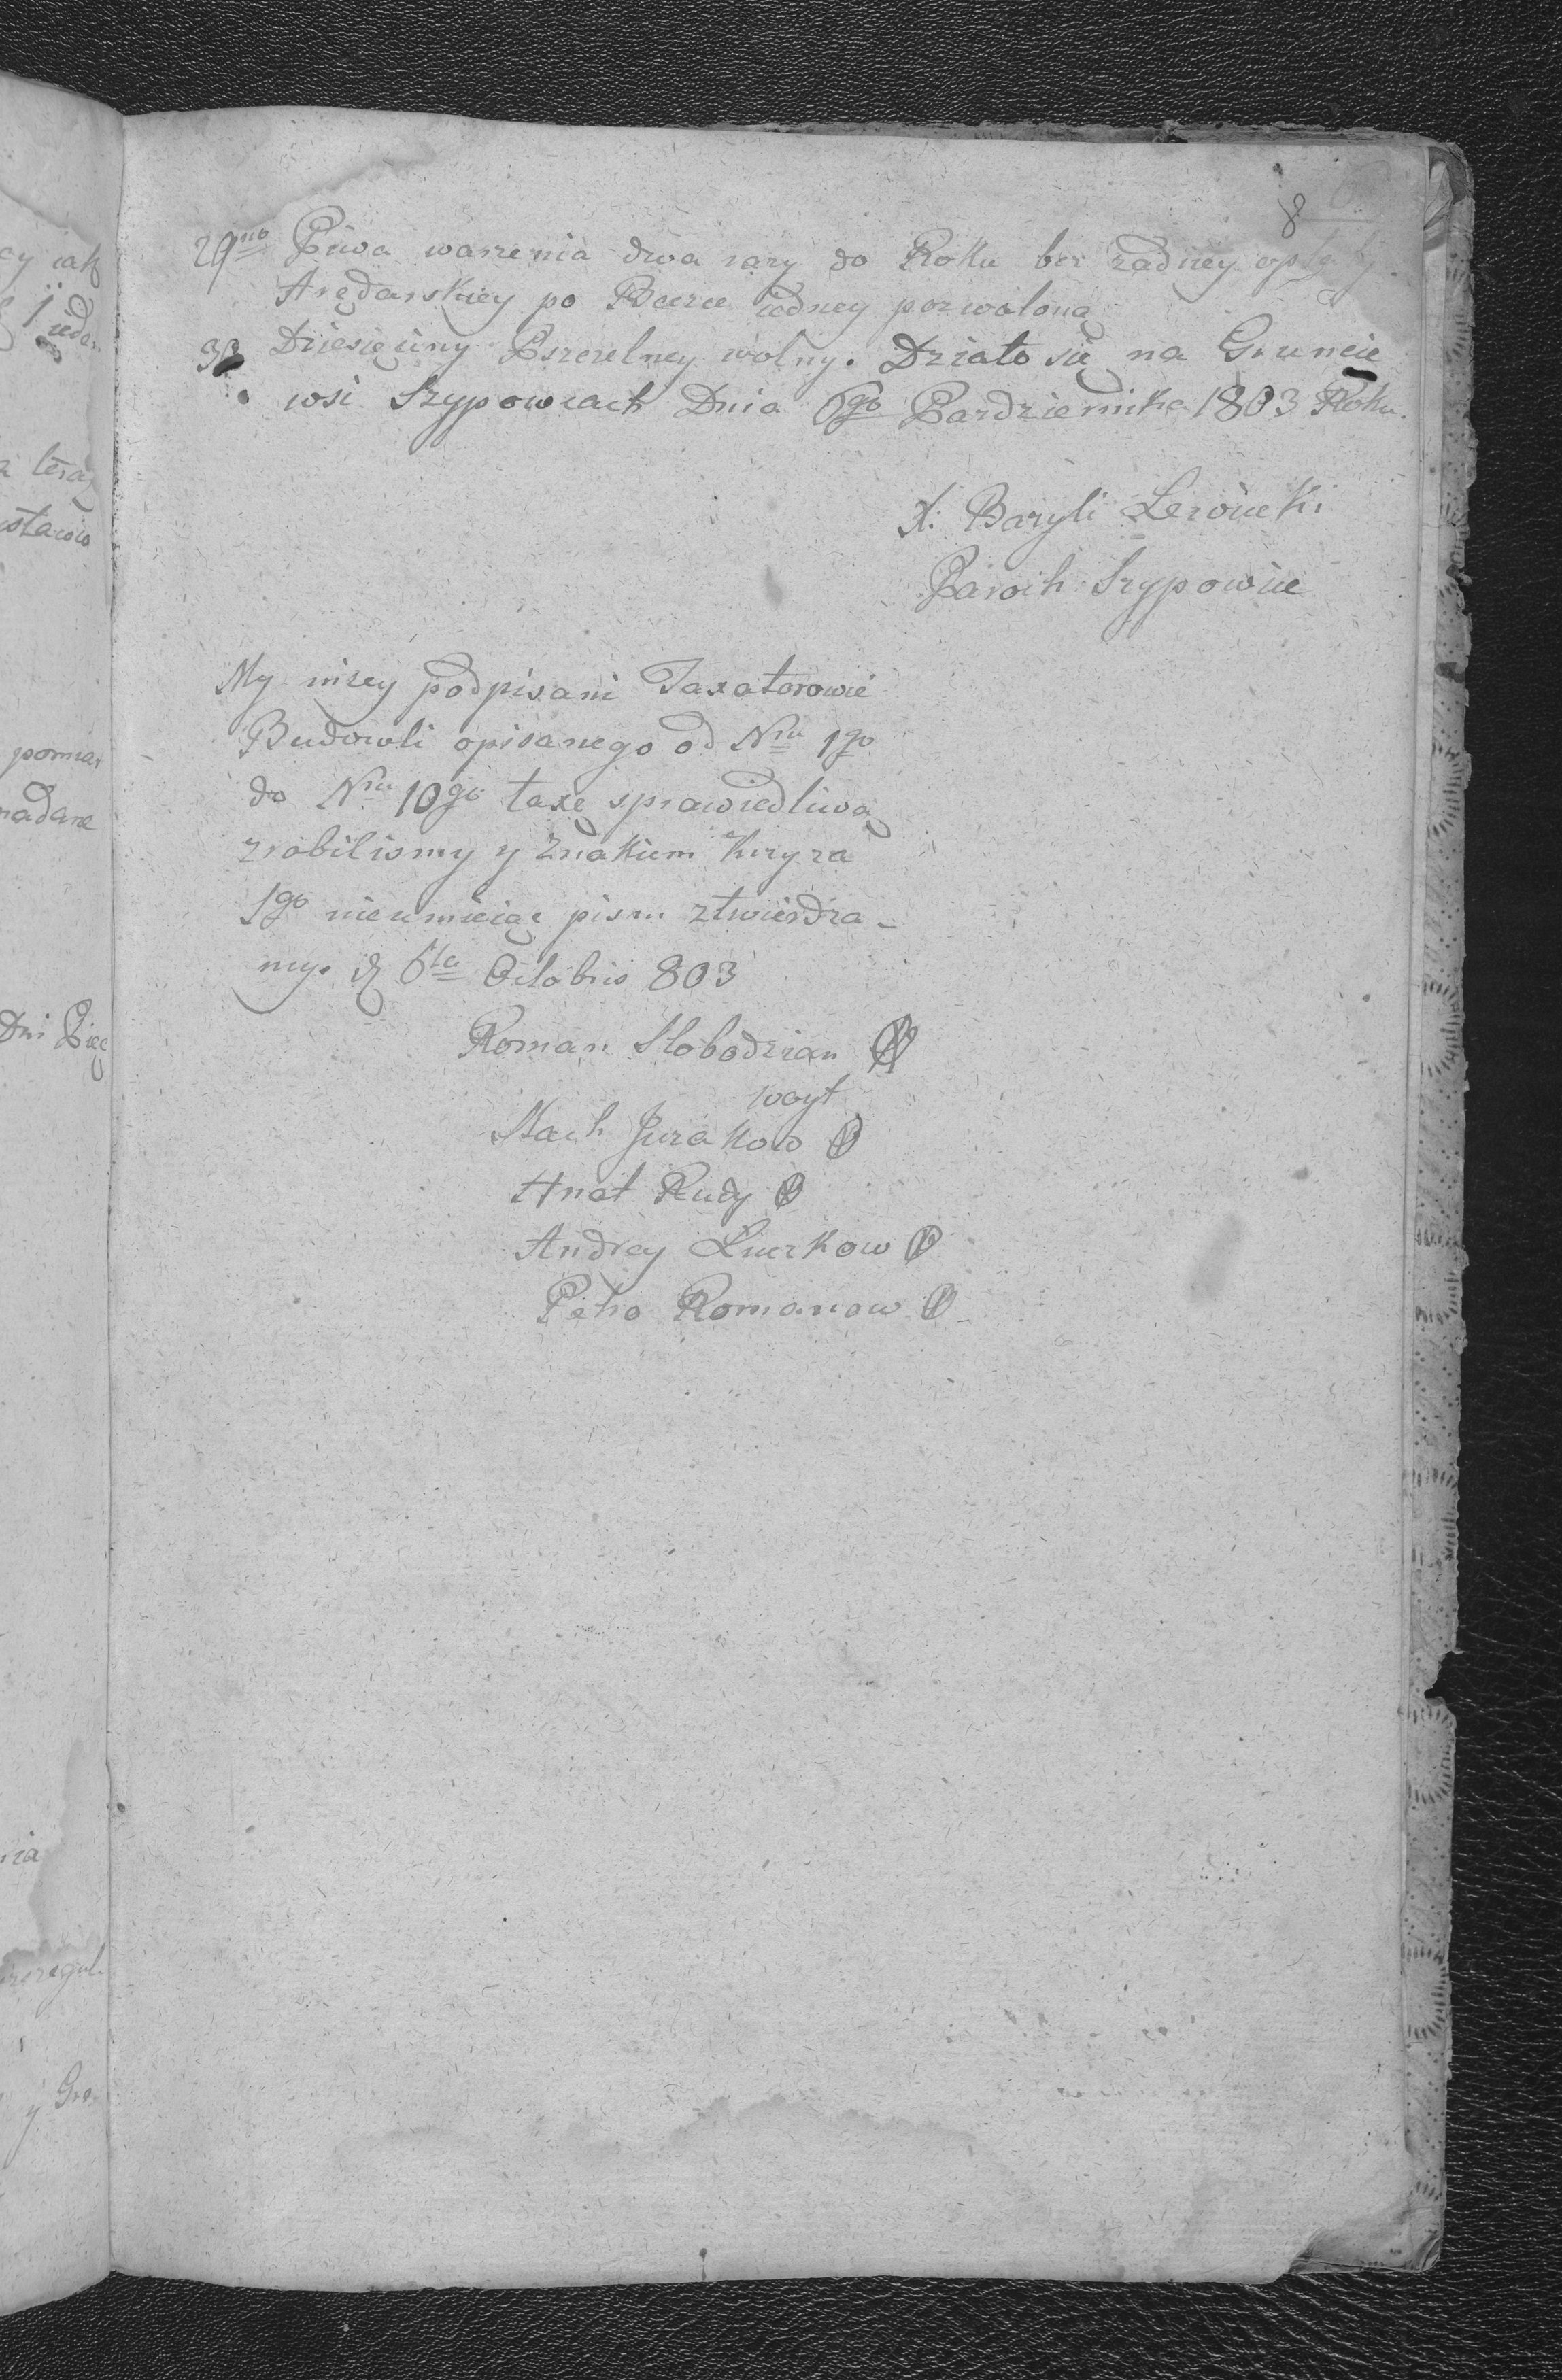 8
29no Piwa warzenia dwa razy do Roku bez żadney opłaty
Arędarskiey po Beczce iedney pozwolono
30 Dziesięciny Pszczelney wolny. Działo się na Gruncie
wsi Szypowcach Dnia 6go Pazdziernika 1803 Roku.
X: Bazyli Lewicki
Paroch Szypowiec
My nizey podpisani Taxatorowie
Budowli opisanego od Nru 1go
do Nru 10go taxę sprawiedliwą
zrobilismy y znakiem Krzyza
Sgo nieumieiąc pism ztwierdza-
my. d 6ta Octobris 803
Roman Slobodzian
woyt
Stach Jurakow
Hnat Rudy
Andrey Luczkow
Petro Romanow